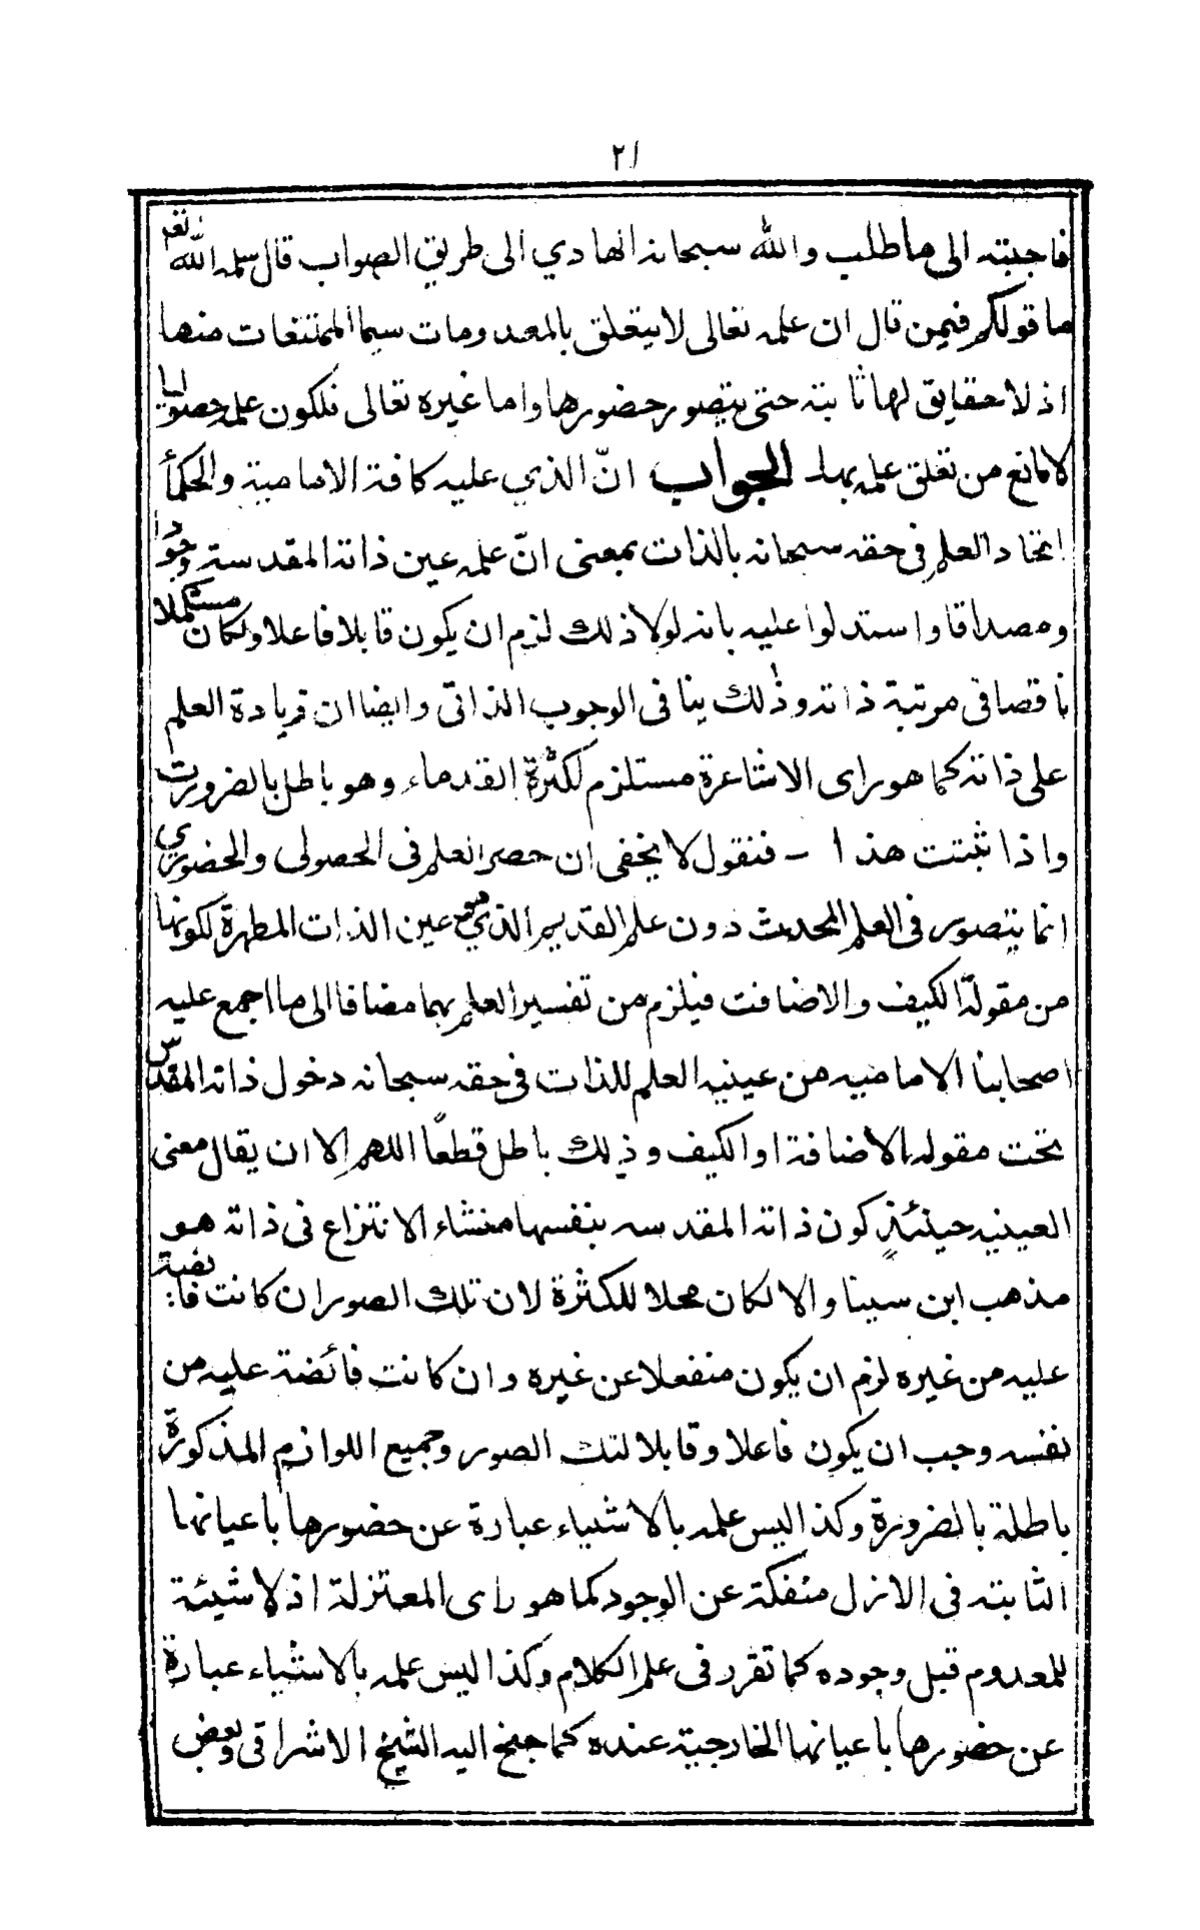 ٢١
فاجبته الى ما طلب والله سبحانه الهادي الى طريق الصواب قال سلمه الله تعم
ما قولكم فيمن قال ان علمه تعالى لا يتعلق بالمعدومات سيما الممتنعات منها
اذ لا حقايق لها ثابته حتى يتصور حضورها واما غيره تعالى فلكون علمه حصوليا
لا مانع من تعلق علمه بها الجواب انّ الذي عليه كافة الامامية والحكمأ
اتحاد العلم في حقه سبحانه بالذات بمعنى انّ علمه عين ذاته المقدسة وجودا
ومصداقا واستدلوا عليه بانه لولا ذلك لزم ان يكون قابلا فاعلا ولكان مستكملا
ناقصا في مرتبة ذاته وذلك ينافى الوجوب الذاتيّ وايضا ان زيادة العلم
على ذاته كما هو راى الاشاعرة مستلزم لكثرة القدماء وهو باطل بالضرورت
واذا ثبتت هذا – فنقول لا يخفى ان حصر العلم فى الحصولى والحضوري
انما يتصور فى العلم المحدث دون علم القديم الذي هو عين الذات المطهرة لكونها
من مقولة الكيف والاضافت فيلزم من تفسير العلم بهما مضافا الى ما اجمع عليه
اصحابنا الاماميه من عينيه العلم للذات فى حقه سبحانه دخول ذاته المقدس
تحت مقوله الاضافة او الكيف وذلك باطل قطعًا اللهم الا ان يقال معنى
العينيه حينئذٍ كون ذاته المقدسه بنفسها منشاء الانتزاع فى ذاته هو
مذهب ابن سينا والا لكان محلا للكثرة لان تلك الصور ان كانت فايضة
عليه من غيره لزم ان يكون منفعلا عن غيره وان كانت فائضة عليه من
نفسه وجب ان يكون فاعلا وقابلا لتلك الصور وجميع اللوازم المذكورة
باطلة بالضرورة وكذا ليس علمه بالاشياء عبارة عن حضورها باعيانها
الثابته فى الازل منفكة عن الوجود كما هو راى المعتزلة اذ لا شيئة
للمعدوم قبل وجوده كما تقرر فى علم الكلام وكذا ليس علمه بالاشياء عبارة
عن حضورها باعيانها الخارجية عنده كما جنح اليه الشيخ الاشراقى وبعض